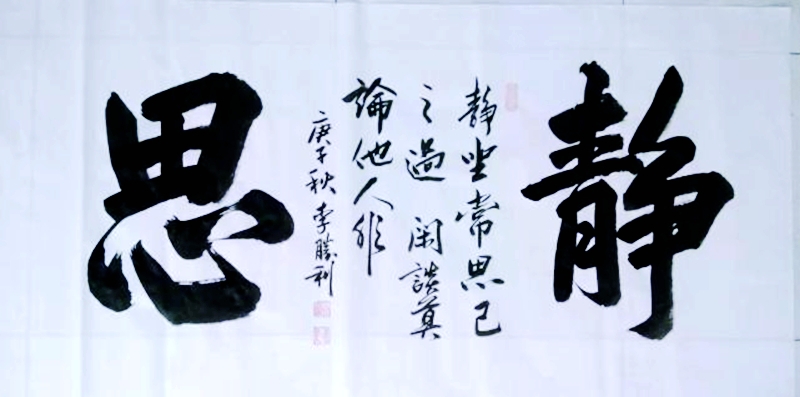 静思
静坐常思己
之過 闲談莫
論他人非
庚子秋 李勝利